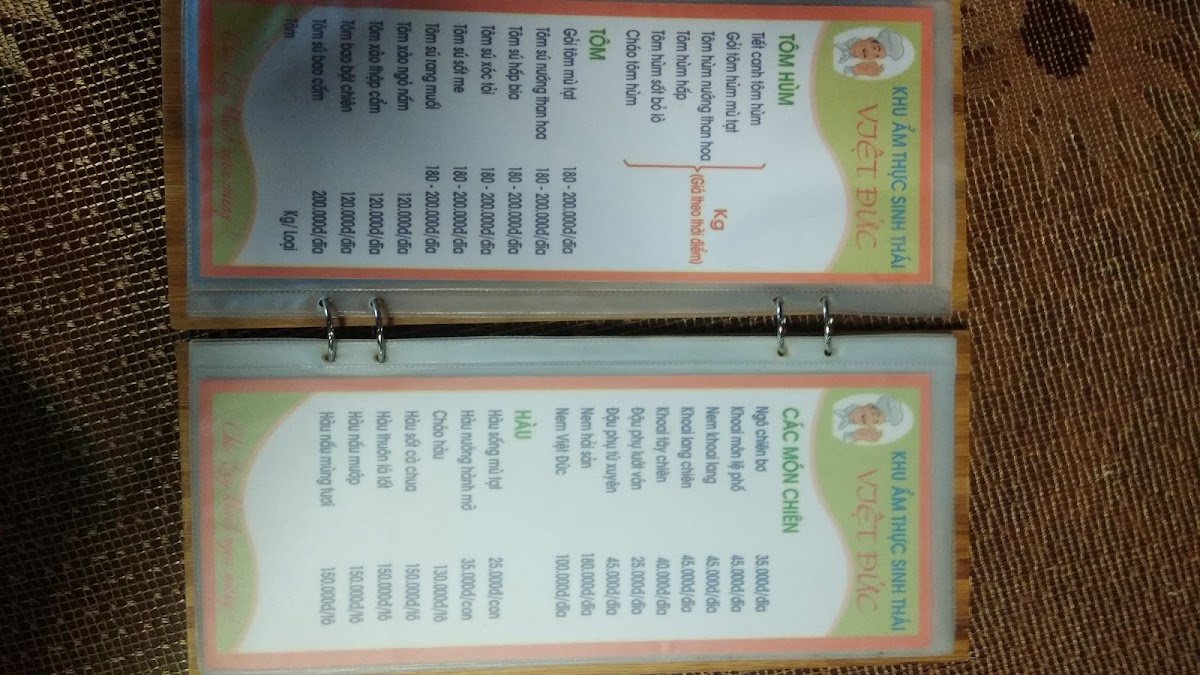 KHU ẨM THỰC SINH THÁI
VIỆT ĐỨC
TÔM HÙM
Tiết canh tôm hùm
Gỏi tôm hùm mù tạt
Tôm hùm nướng than hoa
Tôm hùm hấp
Tôm hùm sốt bỏ lò
Cháo tôm hùm
Kg
(Giá theo thời điểm)
TÔM
Gỏi tôm mù tạt 180 - 200.000đ/đĩa
Tôm sú nướng than hoa 180 - 200.000đ/đĩa
Tôm sú hấp bia 180 - 200.000đ/đĩa
Tôm sú xóc tỏi 180 - 200.000đ/đĩa
Tôm sú sốt me 180 - 200.000đ/đĩa
Tôm sú rang muối 180 - 200.000đ/đĩa
Tôm xào ngò nấm 120.000đ/đĩa
Tôm xào thập cẩm 120.000đ/đĩa
Tôm bao bột chiên 120.000đ/đĩa
Tôm sú bao cốm 200.000đ/đĩa
Tôm Kg/ Loại
KHU ẨM THỰC SINH THÁI
VIỆT ĐỨC
CÁC MÓN CHIÊN
Ngô chiên bơ 35.000đ/đĩa
Khoai môn lệ phố 45.000đ/đĩa
Nem khoai lang 45.000đ/đĩa
Khoai lang chiên 45.000đ/đĩa
Khoai tây chiên 40.000đ/đĩa
Đậu phụ lướt ván 25.000đ/đĩa
Đậu phụ tứ xuyên 45.000đ/đĩa
Nem hải sản 180.000đ/đĩa
Nem Việt Đức 100.000đ/đĩa
HÀU
Hàu sống mù tạt 25.000đ/con
Hàu nướng hành mỡ 35.000đ/con
Cháo hàu 130.000đ/tô
Hàu sốt cà chua 150.000đ/tô
Hàu thuôn lá lốt 150.000đ/tô
Hàu nấu mướp 150.000đ/tô
Hàu nấu mùng tươi 150.000đ/tô